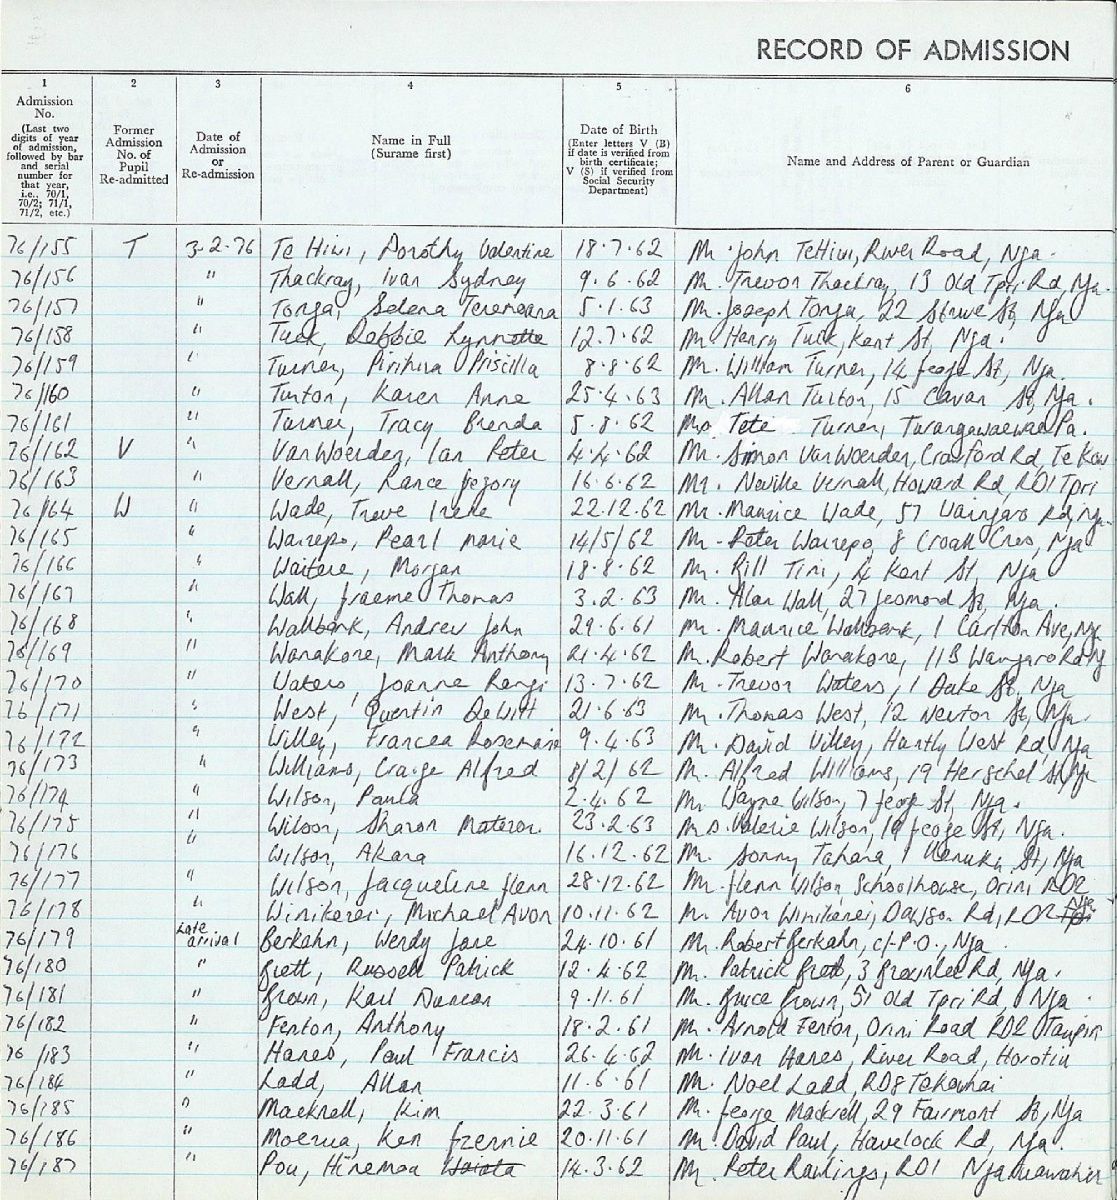 RECORD OF ADMISSION
1 2 3 4 5 6
Admission No. (Last two digits of year of admission, followed by bar and serial number for that year, i.e., 70/1, 70/2; 71/1, 71/2, etc.) Former Admission No. of Pupil Re-admitted Date of Admission or Re-admission Name in Full (Surame first) Date of Birth (Enter letters V (B) if date is verified from birth certificate; V (S) if verified from Social Security Department) Name and Address of Parent or Guardian
76/155 T 3-2-76 Te Hiwi, Dorothy Valentine 18·7·62 Mr. John TeHiwi, River Road, Nga.
76/156 " Thackray, Ivan Sydney 9.6.62 Mr. Trevor Thackray, 13 Old Tpri Rd, Nga.
76/157 " Tonga, Selena 5.1.63 Mr. Joseph Tonga, 22 St, Nga
76/158 " Tuck, Debbie Lynnette 12.7.62 Mr. Henry Tuck, Kent St, Nga.
76/159 " Turner, Pirihira Priscilla 8.8.62 Mr. William Turner, 14 George St, Nga.
76/160 " Turton, Karen Anne 25.4.63 Mr. Allan Turton, 15 Cavan St, Nga.
76/161 " Turner, Tracy Brenda 5.8.62 Turner, Turangawaewae Pa.
76/162 V " VanWoerden, Ian Peter 4.4.62 Mr. Simon VanWoerden, Crawford Rd, Te Kow
76/163 " Vernall, Rance Gregory 16.6.62 Mr. Neville Vernall, Howard Rd, RD1 Tpri
76/164 W " Wade, Treve Irene 22.12.62 Mr. Maurice Wade, 57 Rd, Nga.
76/165 " Wairepo, Pearl Marie 14/5/62 Mr. Peter Wairepo, 8 Croall Cres, Nga
76/166 " Waitere, Morgan 18.8.62 Mr. Bill 4 Kent St, Nga
76/167 " Wall, Graeme Thomas 3.2.63 Mr. Alan Wall, 27 Jesmond St, Nga.
76/168 " Wallbank, Andrew John 29.6.61 Mr. Maurice Wallbank, 1 Carlton Ave, Nga
76/169 " Wanakore, Mark Anthony 21.4.62 Mr. Robert Wanakore, 113 Rd
76/170 " Waters, Joanne Rangi 13.7.62 Mr. Trevor Waters, 1 Duke St, Nga
76/171 " West, Quentin DeWitt 21.6.63 Mr. Thomas West, 12 Newton St, Nga.
76/172 " Willey, Francea Rosemarie 9.4.63 Mr. David Willey, Huntly West Rd, Nga
76/173 " Williams, Craige Alfred 8/2/62 Mr. Alfred Williams, 19 Herschel St, Nga
76/174 " Wilson, Paula 2.4.62 Mr. Wayne Wilson, 7 George St, Nga.
76/175 " Wilson, Sharon 23.2.63 Mrs. Valerie Wilson, George St, Nga.
76/176 " Wilson, Akara 16.12.62 Mr. Sonny Tahana, 1 Uenuku St, Nga
76/177 " Wilson, Jacqueline Glenn 28.12.62 Mr. Glenn Wilson, Schoolhouse, Orini RD2
76/178 " Winikerei, Michael Avon 10.11.62 Mr. Avon Winikerei, Dawson Rd, RD2 Nga
76/179 Late arrival Berkahn, Wendy Jane 24.10.61 Mr. Robert Berkahn, c/- P.O., Nga.
76/180 " Brett, Russell Patrick 12.4.62 Mr. Patrick Brett, 3 Brownlee Rd, Nga.
76/181 " Brown, Karl Duncan 9.11.61 Mr. Bruce Brown, 51 Old Tpri Rd, Nga.
76/182 " Fenton, Anthony 18.2.61 Mr. Arnold Fenton, Orini Road RD2 Taupiri
76/183 " Hanes, Paul Francis 26.4.62 Mr. Ivan Hanes, River Road, Horotiu
76/184 " Ladd, Allan 11.6.61 Mr. Noel Ladd, RD8 Tekowhai
76/185 " Macknell, Kim 22.3.61 Mr. George Macknell, 29 Fairmont St, Nga
76/186 " Moerua, Ken 20.11.61 Mr. David Paul, Havelock Rd, Nga.
76/187 " Pou, Hinemoa Waiata 14.3.62 Mr. Peter Rawlings, RD1 Ngaruawahia